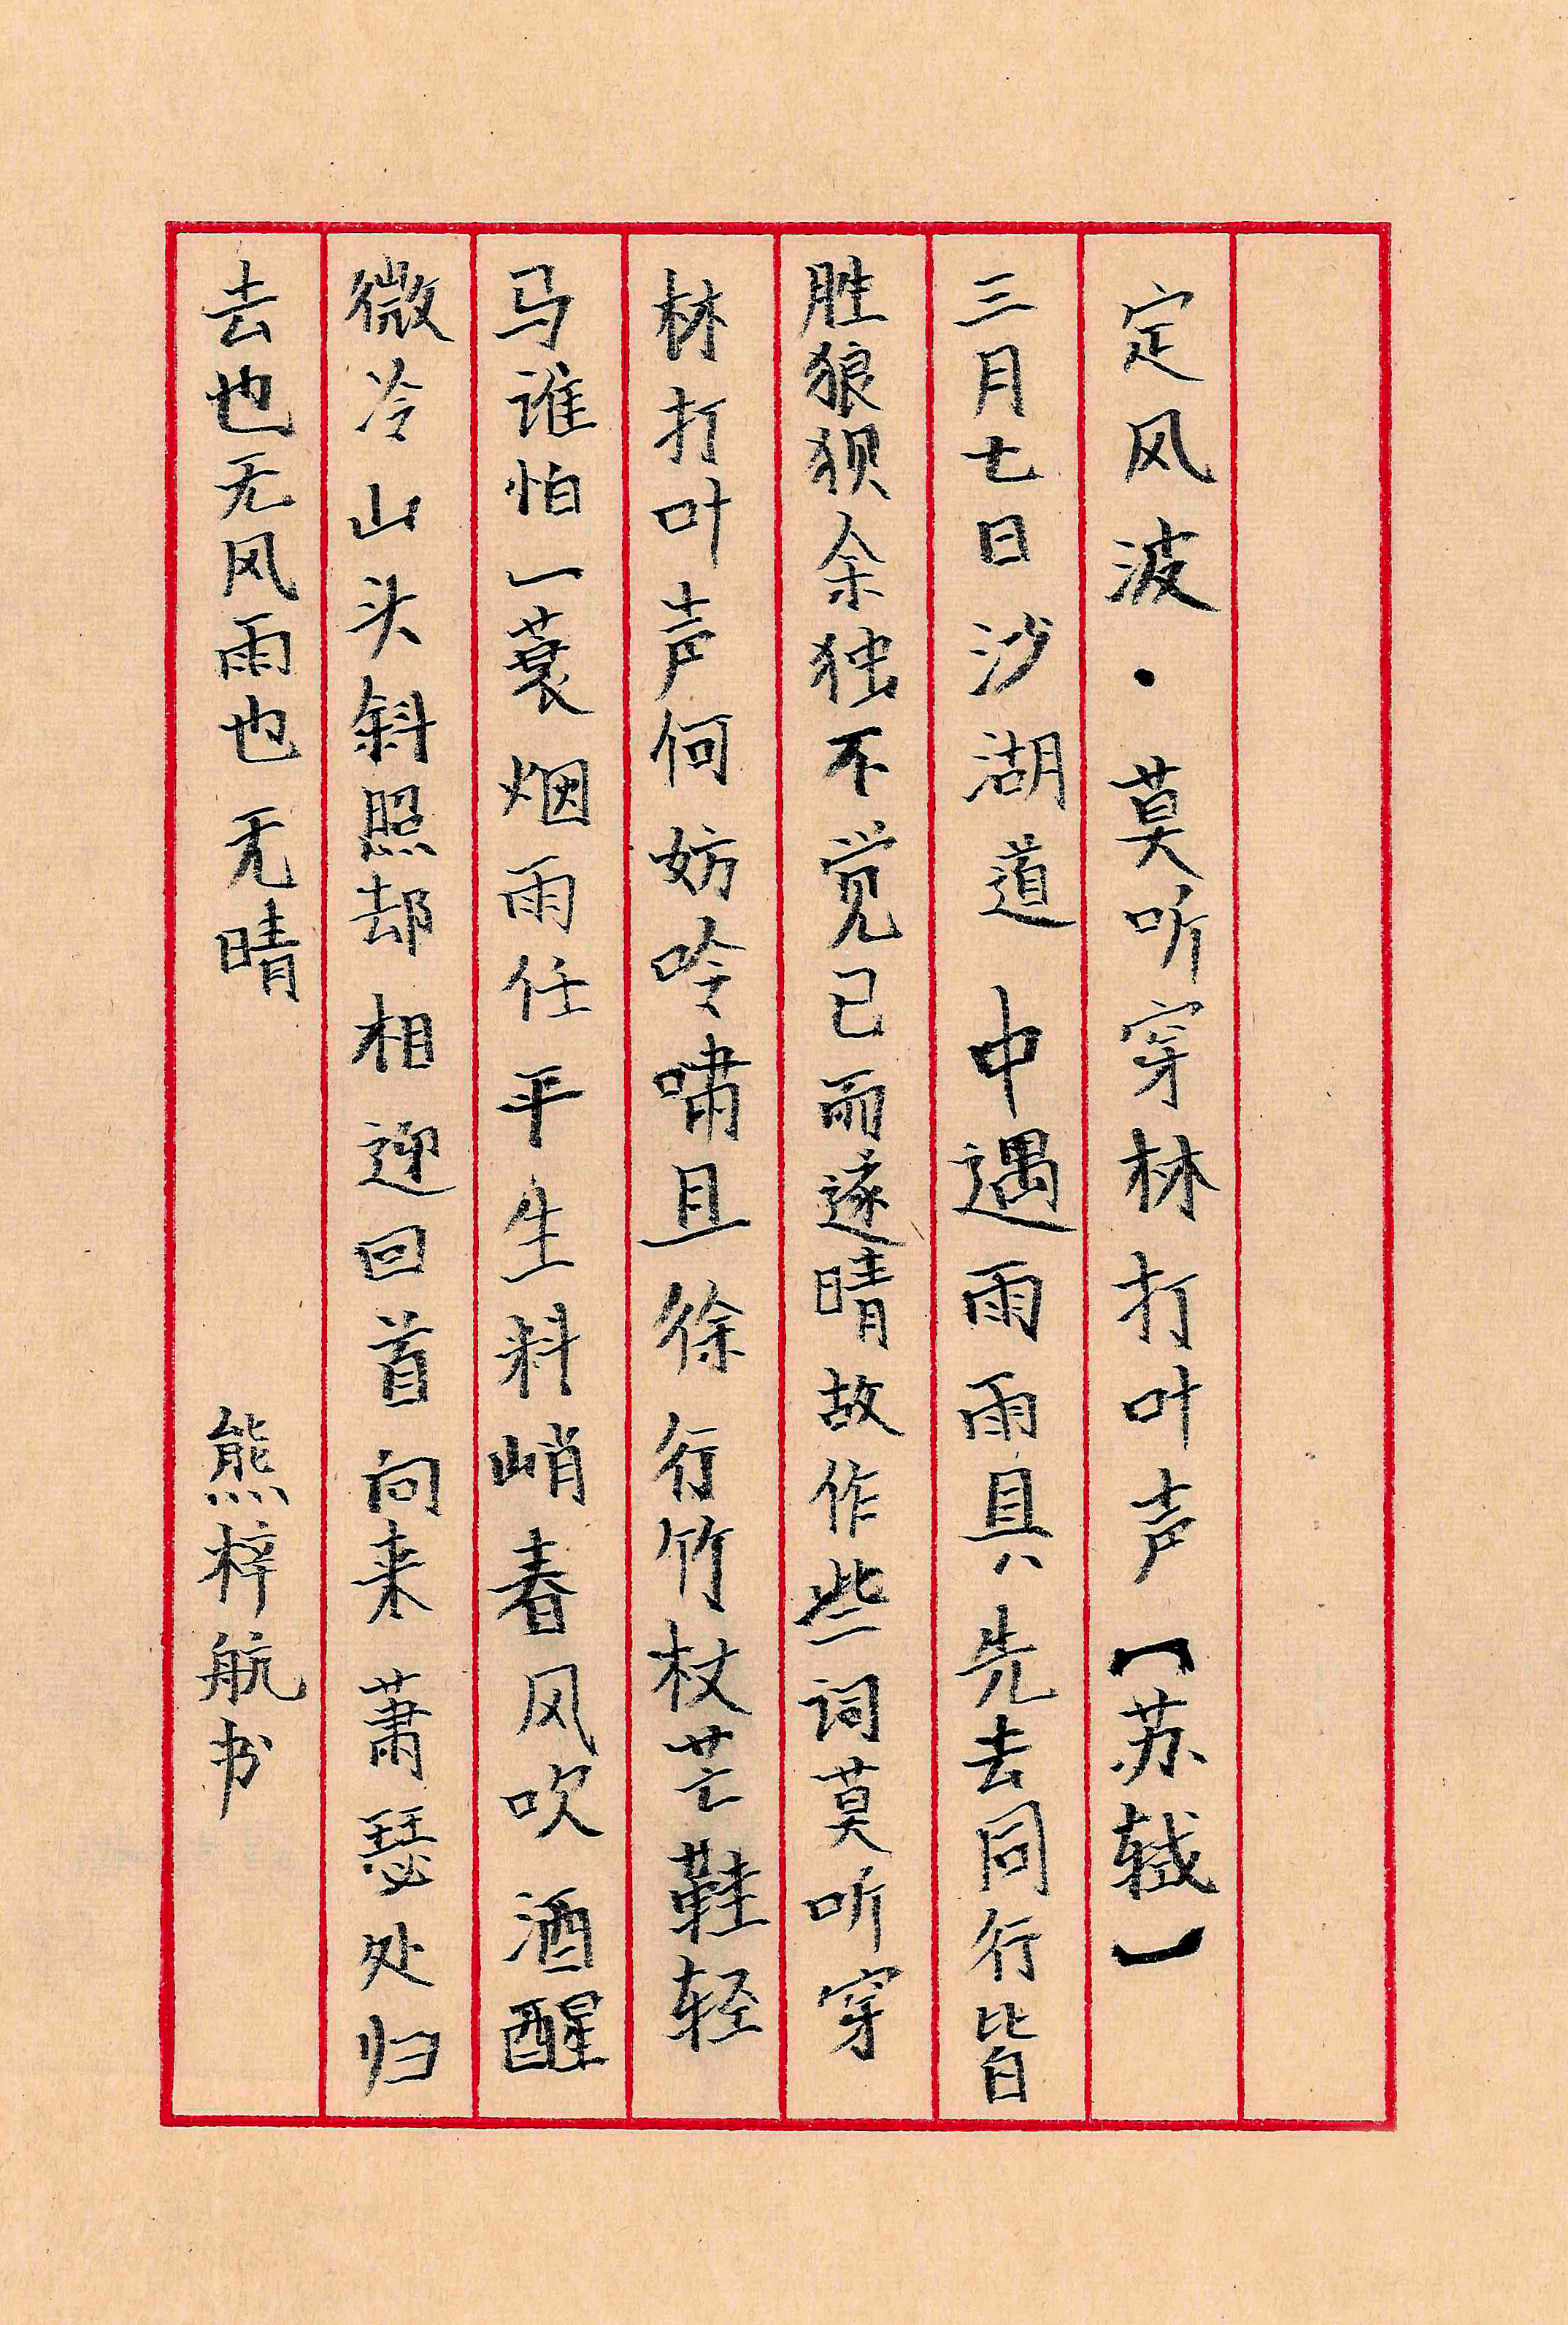 定风波·莫听穿林打叶声【苏轼】
三月七日沙湖道中遇雨雨具先去同行皆
胜狼狈余独不觉已而遂晴故作些词莫听穿
林打叶声何妨吟啸且徐行竹杖芒鞋轻
马谁怕一蓑烟雨任平生料峭春风吹酒醒
微冷山头斜照却相迎回首向来萧瑟处归
去也无风雨也无晴
熊梓航书